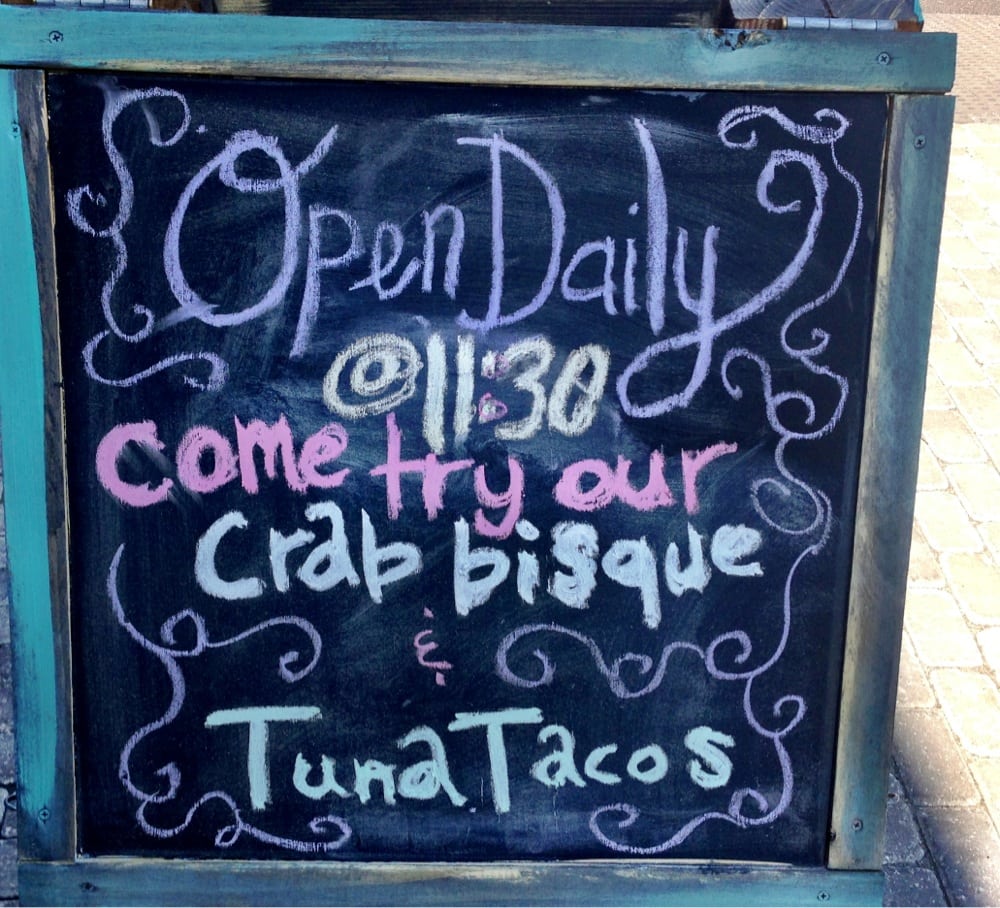 Open Daily
@11:30
come try our
Crab bisque
&
Tuna Tacos